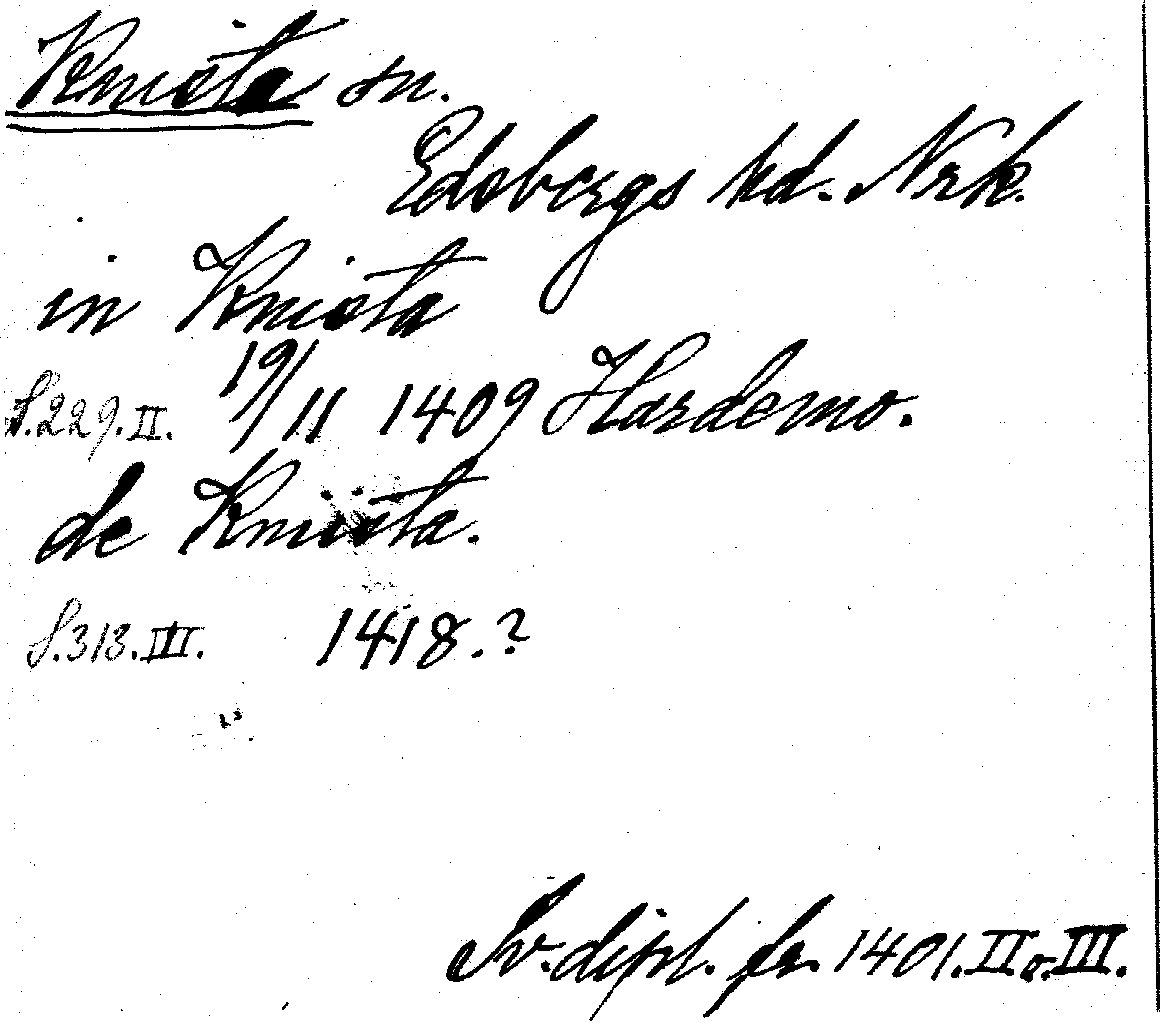 Knista sn.
Edsbergs hd. Nrk.
in Knista
S. 229. II. 19/11 1409 Hardemo.
de Kniista.
S. 313. III. 1418.?
Sv. dipl. fr. 1401. II o. III.